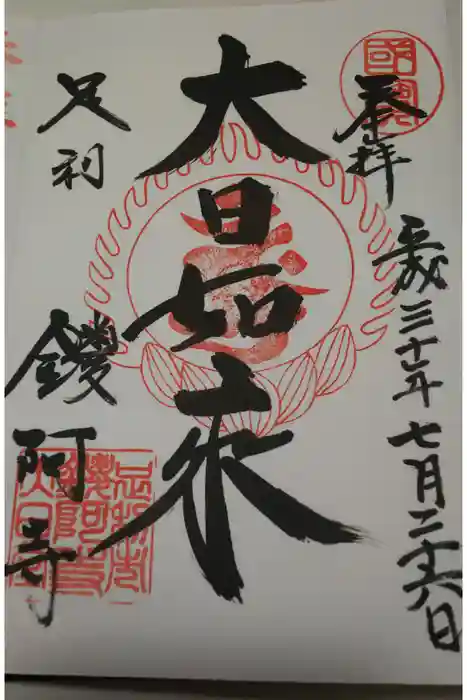 奉拝
平成三十年七月二十六日
大日如来
足利
鑁阿寺
国宝